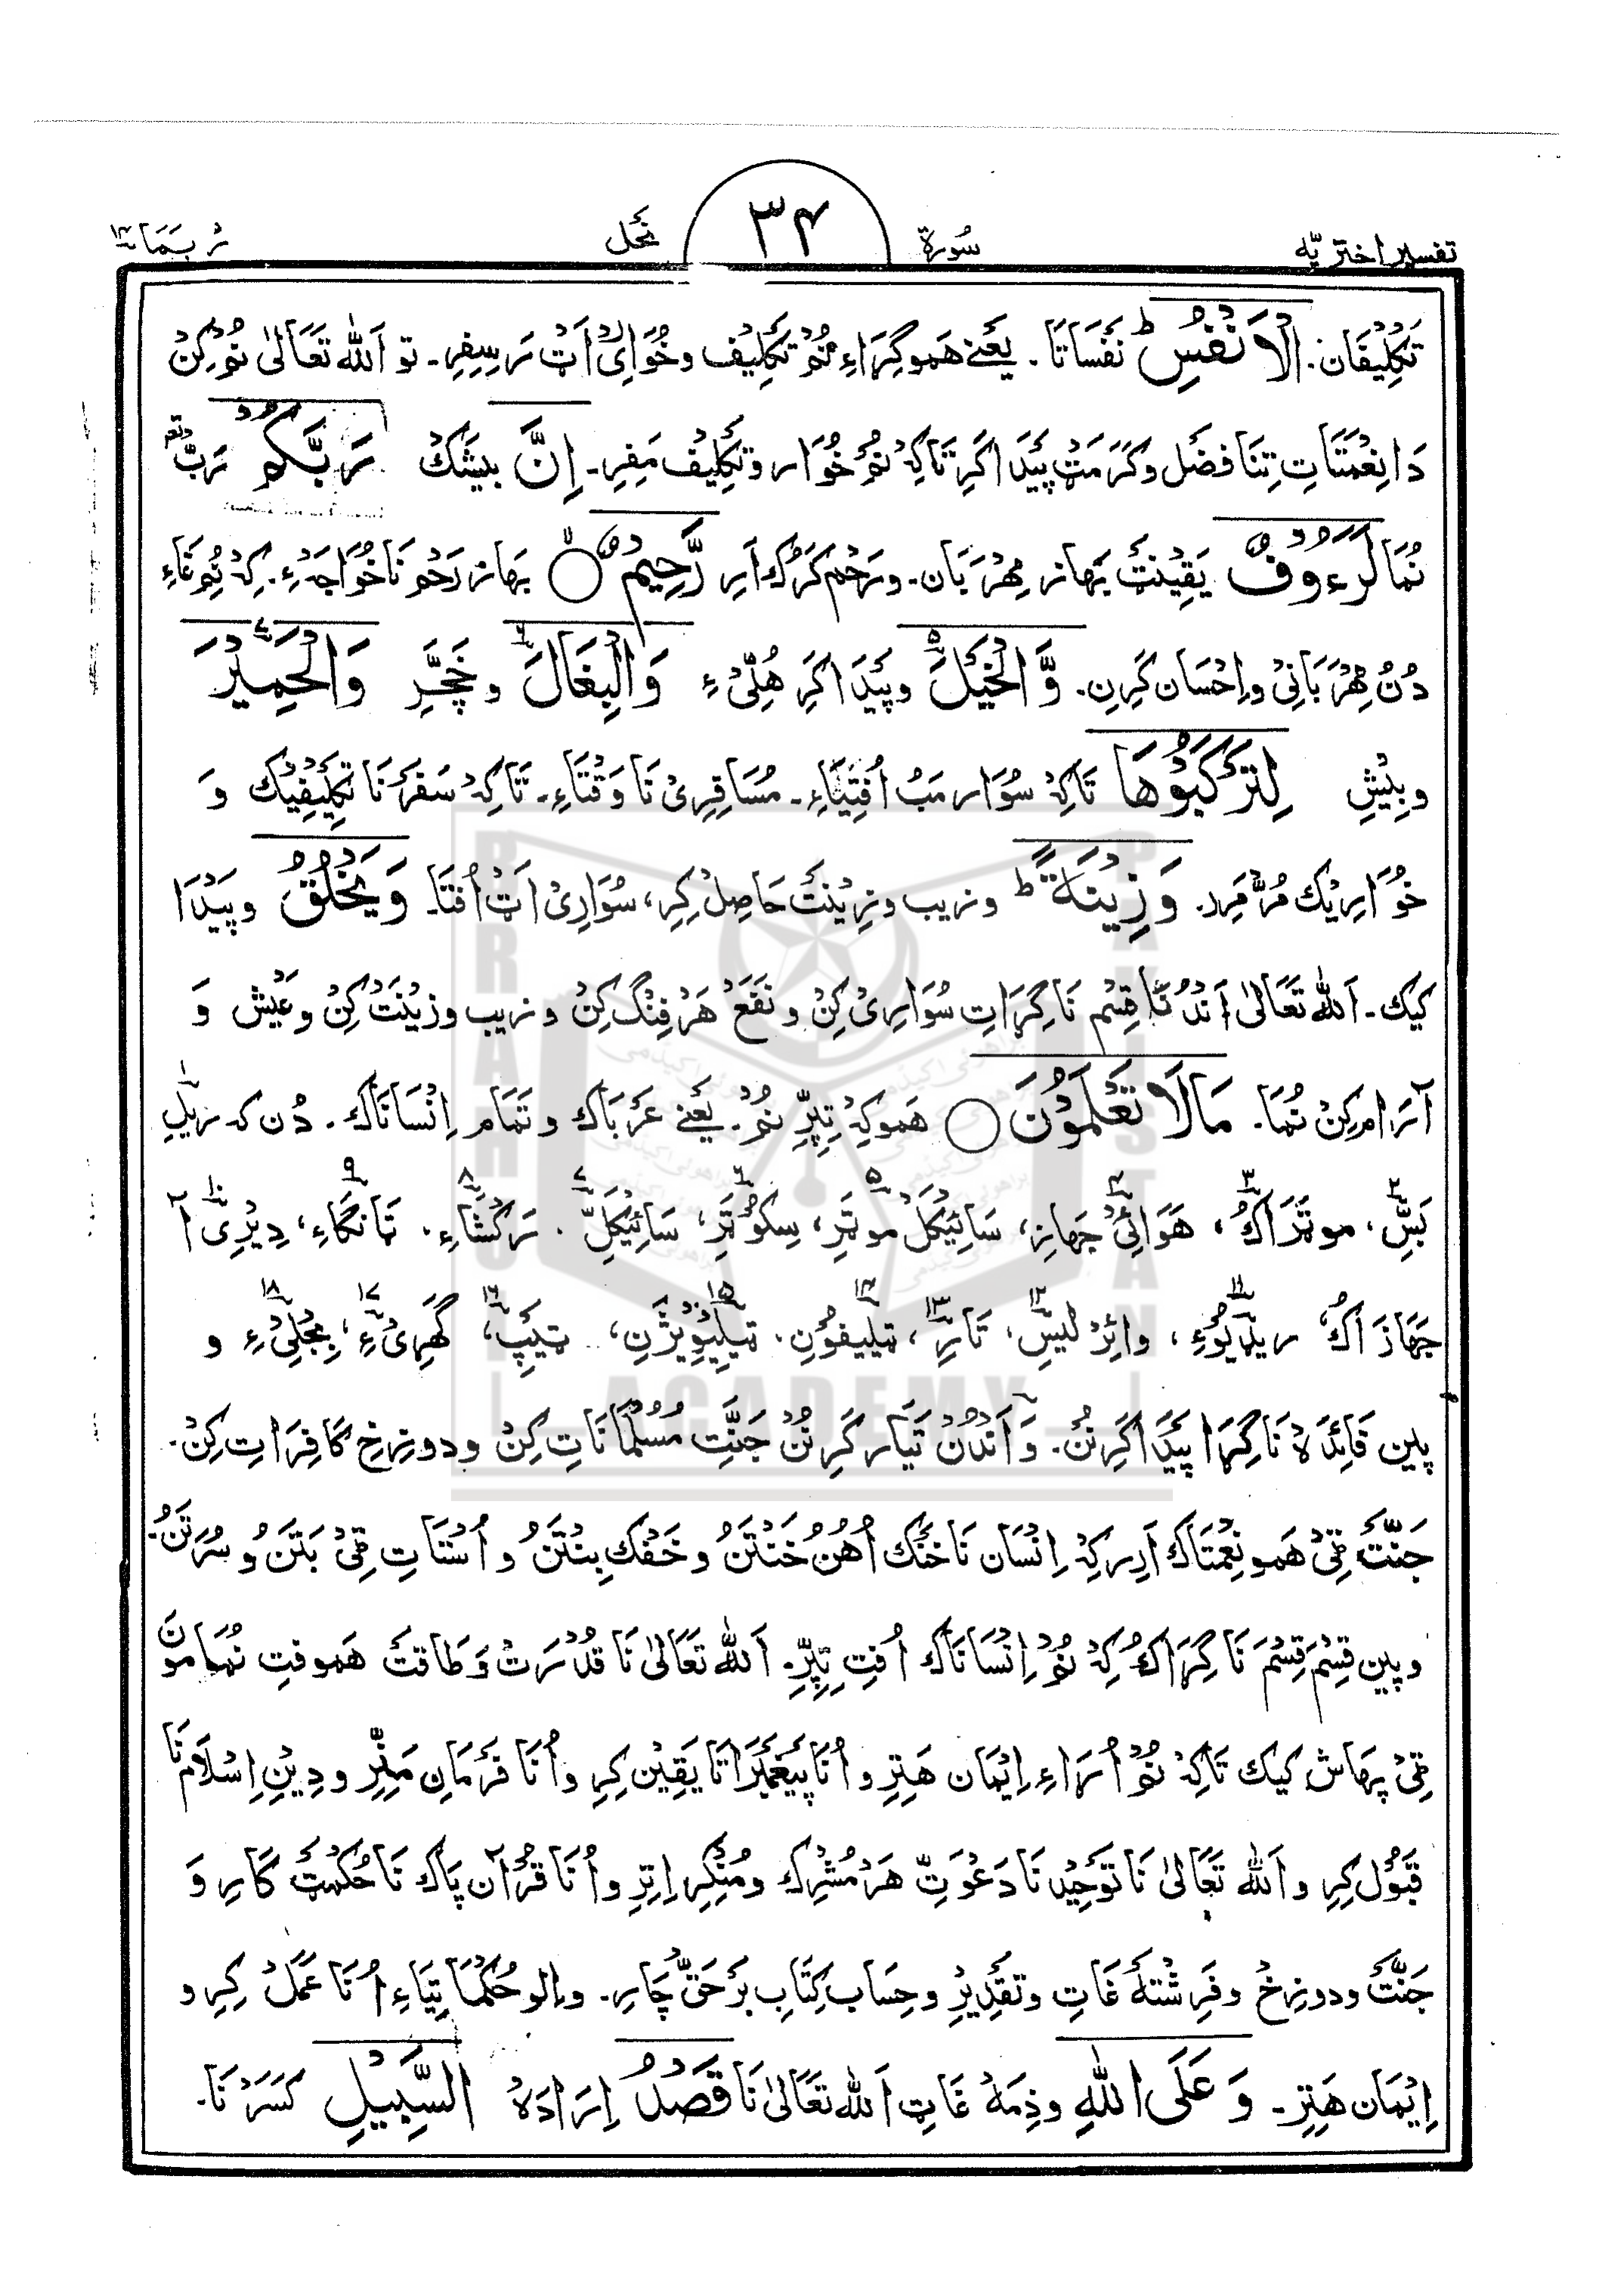 تفسیر اختریّه سُورة ۳۴ نَحل رُبَمَا ۱۴
تَکْلِیْفَان. الْاَنْفُسِ ط نَفَسَاتَا. یَعنے هَمو گِرَاءِ نُمْ تَکلِیْف وخُوَارِیْ اَٹ رَسِیفِرِ۔ تو اَللّٰه تَعَالیٰ نُم کِنْ
دَا نِعْمَتَاتِ تِنَا فَضل و کَرَمَٹ پَیْدا کَرِ تَاکِہ نُمْ خُوَار و تَکلِیْف مَفِرِ۔ اِنَّ بیشَکْ رَبَّکُمْ رَبّ
نُمَا لَرَءُوْفٌ یَقِیْنَٹ بَهاز مِهْرَبَان۔ و رَحْم کَرُک اَرِ رَّحِیْمٌ ○ بَهاز رَحْم نَا خُوَاجَهءِ. کِہ نُم غَاءِ
دُنْ مِهْرَبَانِیْ و اِحْسَان کَرِن. وَّ الْخَیْلَ و پَیْدَا کَرِ هُلِّیْ ءِ وَالْبِغَالَ و خَچَّرِ وَالْحَمِیْرَ
و بِیْشِ لِتَرْکَبُوْهَا تَاکِہْ سُوَار مَبُ اُفتِیَاءِ۔ مُسَافِرِیْ نَا وَقْتَاءِ۔ تَاکِہْ سَفَر نَا تَکْلِیْفِیْک وَ
خُوَارِیْک مُرّ مَرِد. وَزِیْنَةً ط و زیب و زِیْنَت حَاصِلْ کِرِ، سُوَارِیْ اَٹْ اُفْتَا۔ وَیَخْلُقُ و پَیْدَا
کیک۔ اَللّٰه تَعَالیٰ اَنْدُنَا قِسْم نَا گِرَاتِ سُوَارِیْ کِنْ و نَفَعْ هَرْفِنگ کِنْ و زیب و زِیْنَت کِنْ و عَیْش وَ
آرَام کِنْ نُمَا. مَا لَا تَعْلَمُوْنَ ○ هَمو کِہْ تِپرِّ نُمْ. یَعنے عَرَبَاک و تَمَام اِنْسَانَاک. دُن کہ ریلِ
بَسِّ، موٹَرَاکْ، هَوَائِیْ جَهازِ، سَائِیْکَل موٹَرِ، سکوٹَرِ، سَائِیْکَلِّ. رَکْشَاءِ. تَانگاءِ، دِیْرِیْ آ
جَهازَاک ریڈیُوءِ، وائِرْلَیسِّ، تَارِ، ٹیلیفوُن. ٹیلِیْوِیْژَنِ، ٹیپِ، گَهرِیْءِ، بِجْلِیْءِ و
پلین فَائِدَہْ نَا گِرَا پَیْدَا کَرِنُن. وَ اَنْدُنْ تَیَّار کَرِنُن جَنَّتِ مُسُلْمَانَاتِ کِنْ و دوزَخِ کَافِرَاتِ کِنْ.
جَنَّت ٹِیْ هَمو نِعْمَتَاک اَرِر کِہْ اِنْسَان نَا خَنْک اُهُنْ خَنْتَنُ و خَفْک بِنْتَنُ و اُسْتَاتِ ٹِیْ بَتَنُ و سُرَتَنُ۔
و پلین قِسْم قِسْم نَا گِرَاک کِہْ نُمْ اِنْسَانَاک اُفتِ تِپرِّ۔ اَللّٰه تَعَالیٰ نَا قُدْرَت و طَاقَت هَموفتِ نُمَا مون
ٹِیْ پِهاش کیک تَاکِہْ نُمْ اُرَاءِ اِیْمَان هَتِرِ و اُنَا پَیْغَمْبَرَاتَا یَقِیْن کِرِ و اُنَا فَرْمَان مَنِّرِ و دِیْنِ اِسْلَام نَا
قَبُول کِرِ و اَللّٰه تَعَالیٰ نَا تَوحِیْد نَا دَعْوَتِّ هَرْ مُشْرِک و مُنْکِرِ اِتِرِ و اُنَا قُرْآن پَاک نَا حُکمَٹ کَارِ وَ
جَنَّت و دوزخْ و فَرِشْتَہ غَاتِ و تَقْدِیْرِ و حِسَاب کِتَابِ بَرحَقّ چَارِ۔ و اِلو حُکْمَا تِیَاءِ اُنَا عَمَلْ کِرِ و
اِیْمَان هَتِرِ۔ وَ عَلَی اللّٰهِ و ذِمَہ غَاتِ اَللّٰه تَعَالیٰ نَا قَصْدُ اِرَادَہْ السَّبِیْلِ کَسَرْ نَا۔